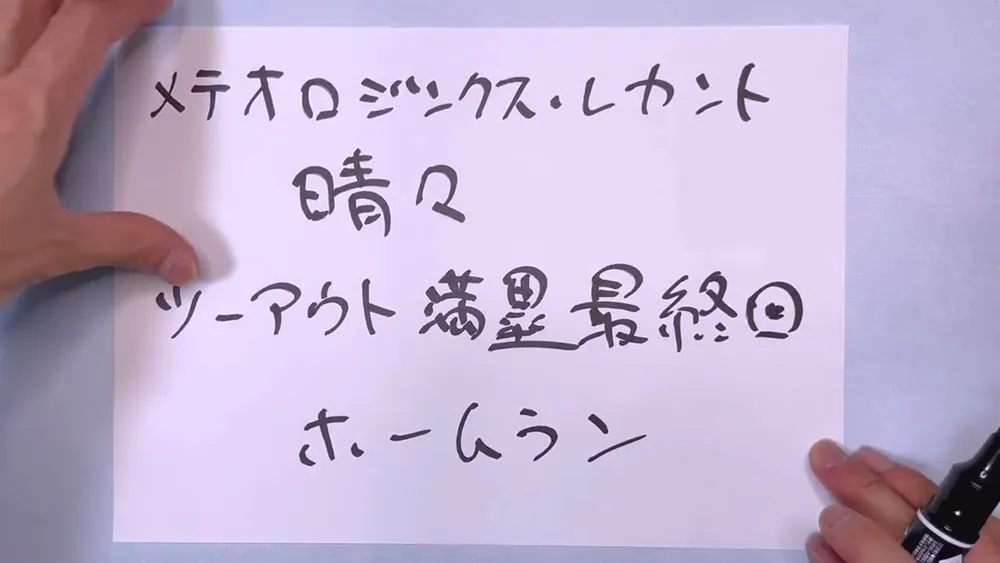 メテオロジンクス・レカント
晴々
ツーアウト満塁最終回
ホームラン